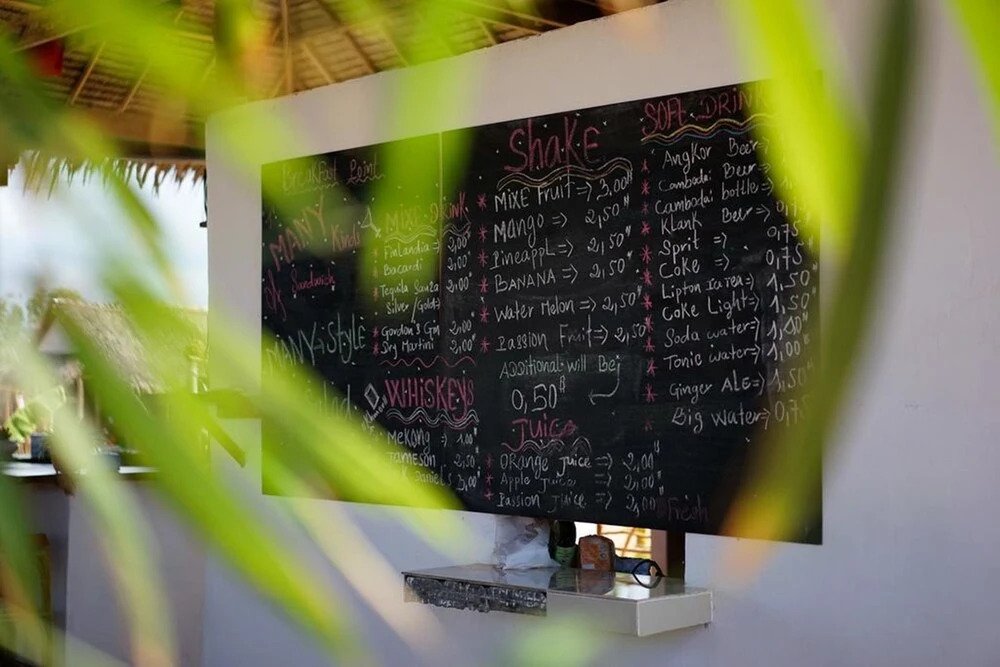 BreakFast Point
MANY
Kinds
Sandwich
MANY Style
MIXE DRINK
Finlandia => 2,00
Bacardi 2,00
Tequila Sauza 2,00
Silver/Gold
Gordon's Gin 2,00
Dry Martini 2,00
WHISKEYS
Mekong => 1,00
Jameson 2,50
Daniel's 3,00
Shake
Mixe Fruit => 3,00
Mango => 2,50
Pineappl => 2,50
BANANA => 2,50
Water Melon => 2,50
Passion Fruit => 2,50
Additional will Bej
0,50
Juice
Orange Juice => 2,00
Apple Juice => 2,00
Passion Juice => 2,00
Fresh
SOFT DRINK
Angkor Beer
Cambodai Beer
Cambodai bottle =>
Klang Beer => 0,75
Sprit =>
Coke => 0,75
Lipton Ice tea => 1,50
Coke Light => 1,50
Soda water => 1,00
Tonic water => 1,00
Ginger Ale => 1,50
Big Water => 0,75